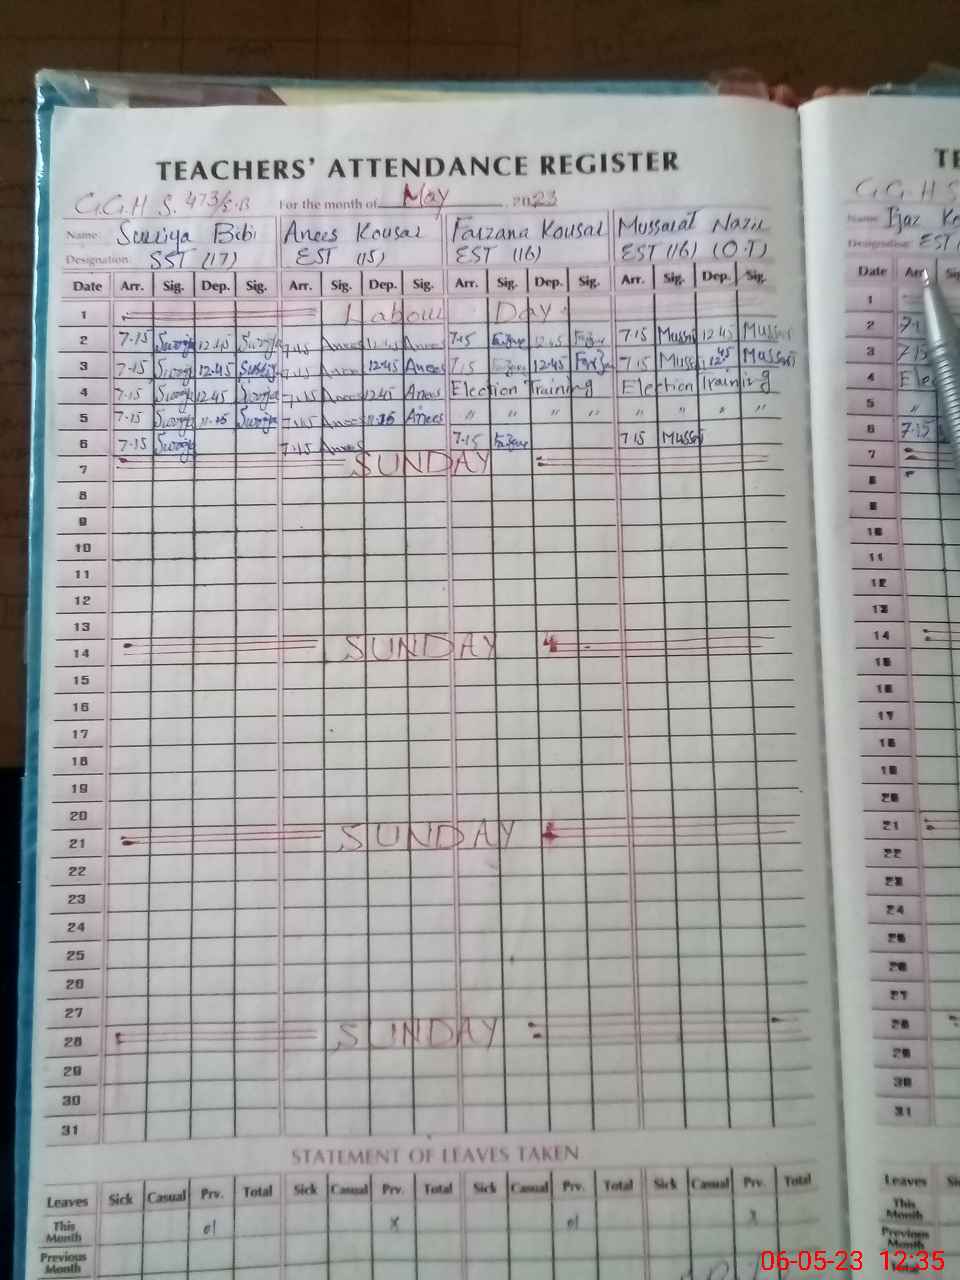 TEACHERS' ATTENDANCE REGISTER
G.G.H S. 473/E.B For the month of May , 2023
Name: Surriya Bibi Anees Kousar Farzana Kousar Mussarat Nazir
Designation: SST (17) EST (15) EST (16) EST (16) (O.T)
Date Arr. Sig. Dep. Sig. Arr. Sig. Dep. Sig. Arr. Sig. Dep. Sig. Arr. Sig. Dep. Sig.
1 Labour Day
2 7.15 12.45 7.15 Anees 12.45 Anees 7.15 12.45 7.15 Mussr 12.45 Mussr
3 7.15 12.45 7.15 Anees 12.45 Anees 7.15 12.45 7.15 Mussr 12.45 Mussr
4 7.15 12.45 7.15 Anees 12.45 Anees Election Training Election Training
5 7.15 7.15 Anees Anees " " " " " " " "
6 7.15 7.15 Anees 7.15 7.15 Mussr
7 SUNDAY
8
9
10
11
12
13
14 SUNDAY
15
16
17
18
19
20
21 SUNDAY
22
23
24
25
26
27
28 SUNDAY
29
30
31
STATEMENT OF LEAVES TAKEN
Leaves Sick Casual Prv. Total Sick Casual Prv. Total Sick Casual Prv. Total Sick Casual Prv. Total
This Month 01 x 01 x
Previous Month
TE
G.G.H S
Name: Ijaz Ko
Designation: EST
Date Arr. Sig
1
2 7.1
3 7.15
4 Elec
5 "
6 7.15
7
8
9
10
11
12
13
14
15
16
17
18
19
20
21
22
23
24
25
26
27
28
29
30
31
Leaves
This Month
Previous Month
Total
06-05-23 12:35